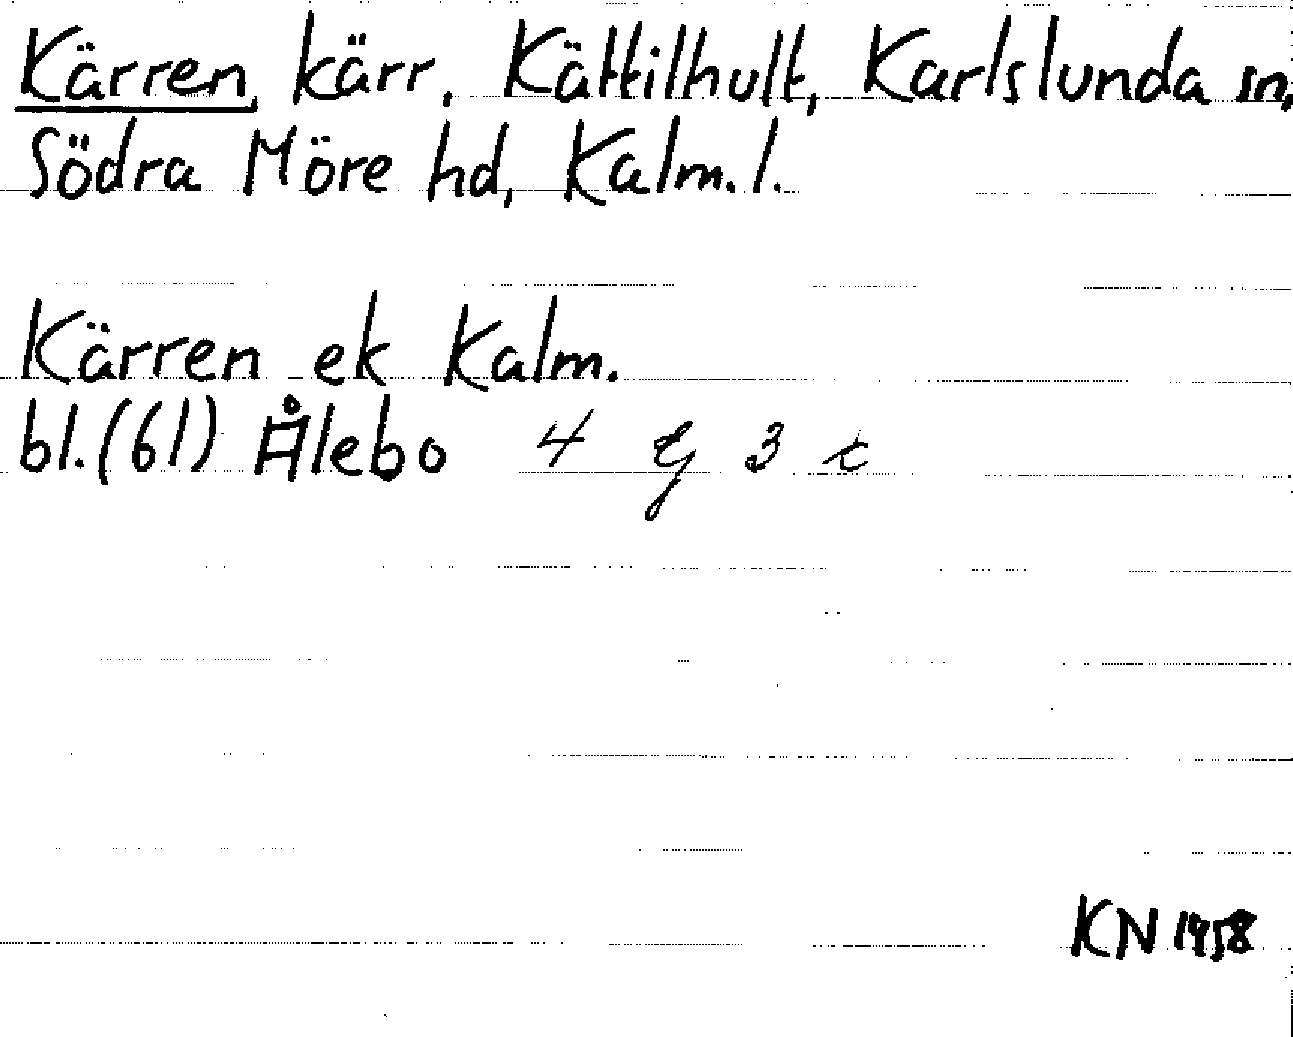 Kärren, kärr, Kättilhult, Karlslunda sn,
Södra Möre hd, Kalm. l.
Kärren ek Kalm.
bl. (61) Ålebo 4 G 3 c
KN 1958